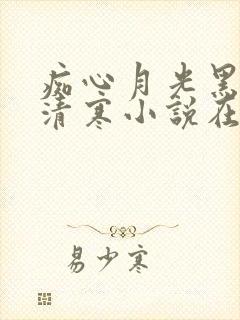 痴心月光黑
清寒小說在
易少寒